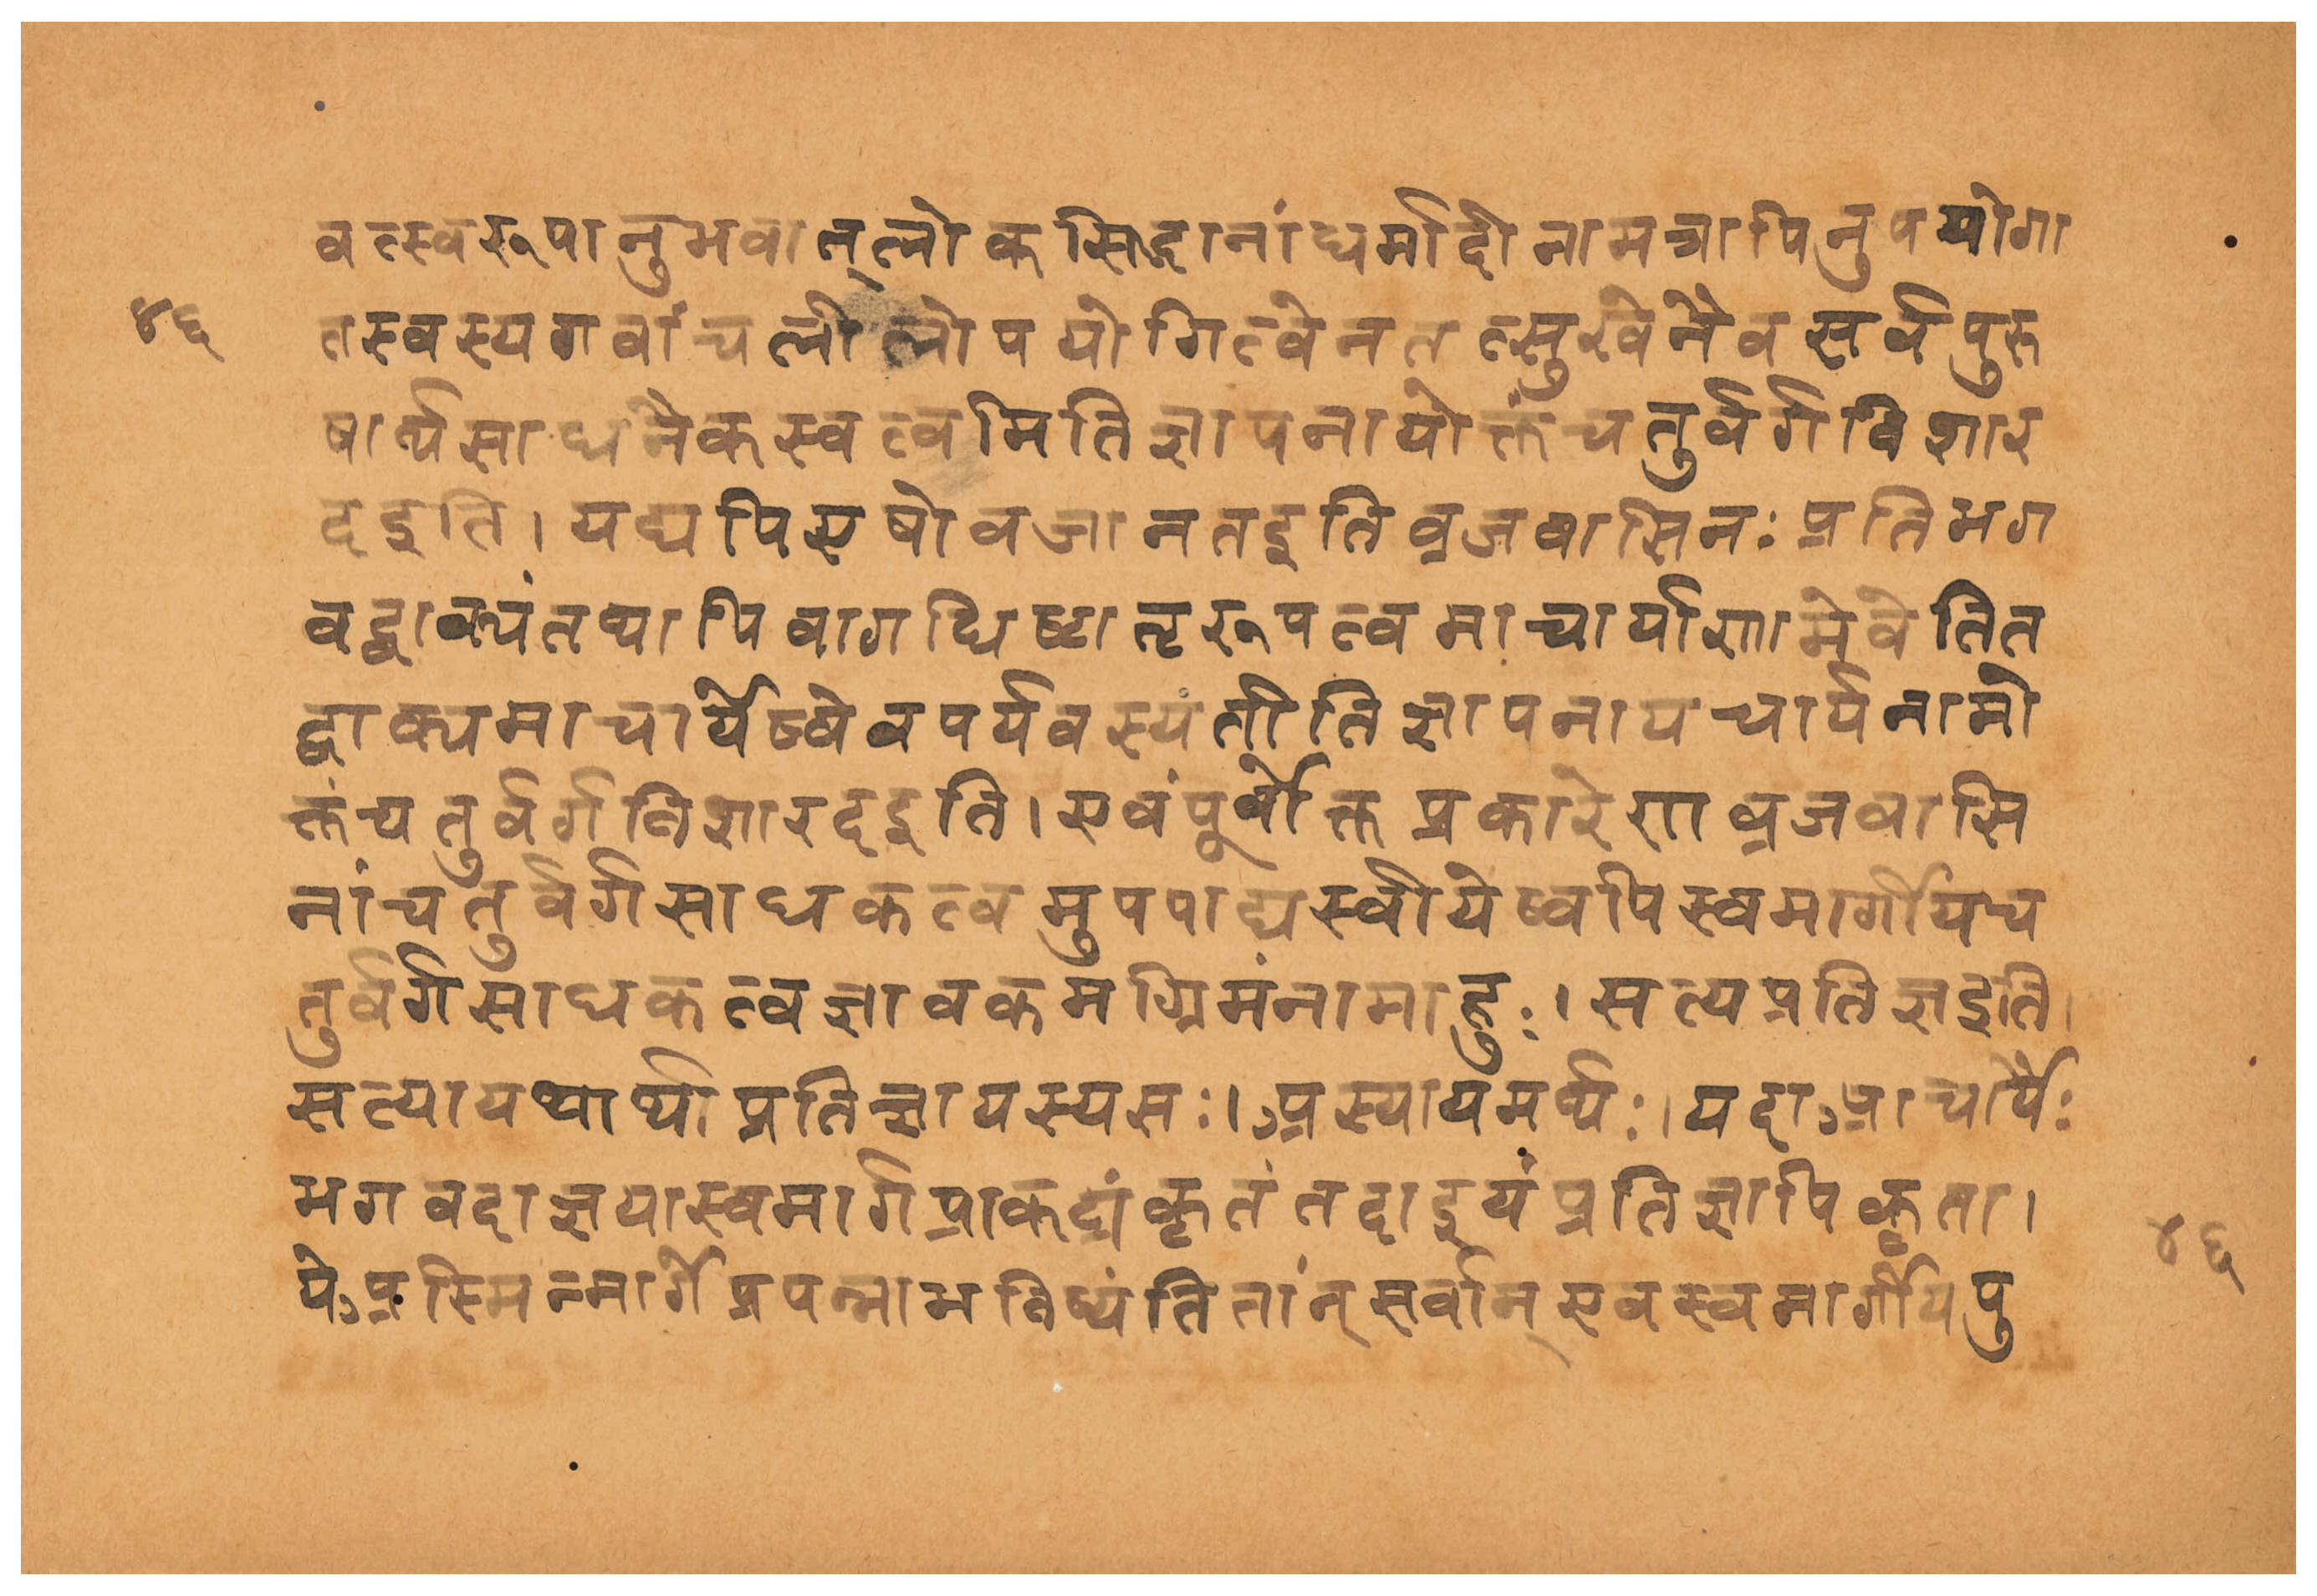 वत्स्वरूपानुभवात् लोकसिद्धानांधर्मादीनामत्रापिनुपयोगा
४६
तस्वस्यगवांचलीलोपयोगित्वेनतत्सुखेनैवसर्वपुरु
षार्थसाधनैकस्वत्वमितिज्ञापनायोक्तंचतुर्वर्गविशार
दइति। यद्यपिएषोवजानतइतिव्रजवासिनः प्रतिभग
वद्वाक्यंतथापिवागधिष्टातृरूपत्वमाचार्याणामेवेतित
द्वाक्यमाचार्येष्वेवपर्यवस्यतीतिज्ञापनायचार्यनामो
क्तंचतुर्वर्गविशारदइति। एवंपूर्वोक्तप्रकारेणव्रजवासि
नांचतुर्वर्गसाधकत्वमुपपाद्यस्वीयेष्वपिस्वमार्गीयच
तुर्वर्गसाधकत्वज्ञावकमग्रिमंनामाहुः। सत्यप्रतिज्ञइति।
सत्यायथार्थाप्रतिज्ञायस्यसः। अस्यायमर्थः। यदाआचार्यैः
भगवदाज्ञयास्वमार्गप्राकट्यंकृतंतदाइयंप्रतिज्ञापिकृता।
४६
येअस्मिन्मार्गेप्रपन्नाभविष्यंतितांन् सर्वान् एवस्वमार्गीयपु